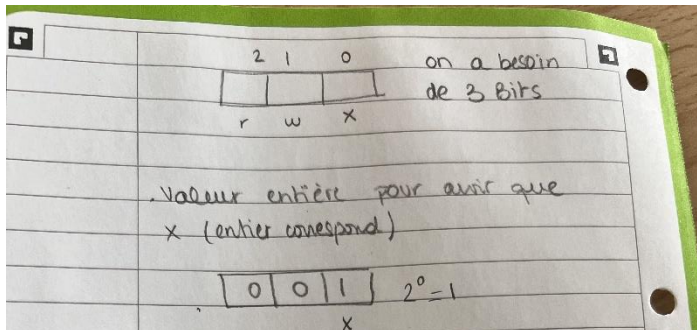 2 1 0 on a besoin
de 3 Bits
r w x
. Valeur entière pour avoir que
x (entier correspond)
0 0 1 2⁰=1
x